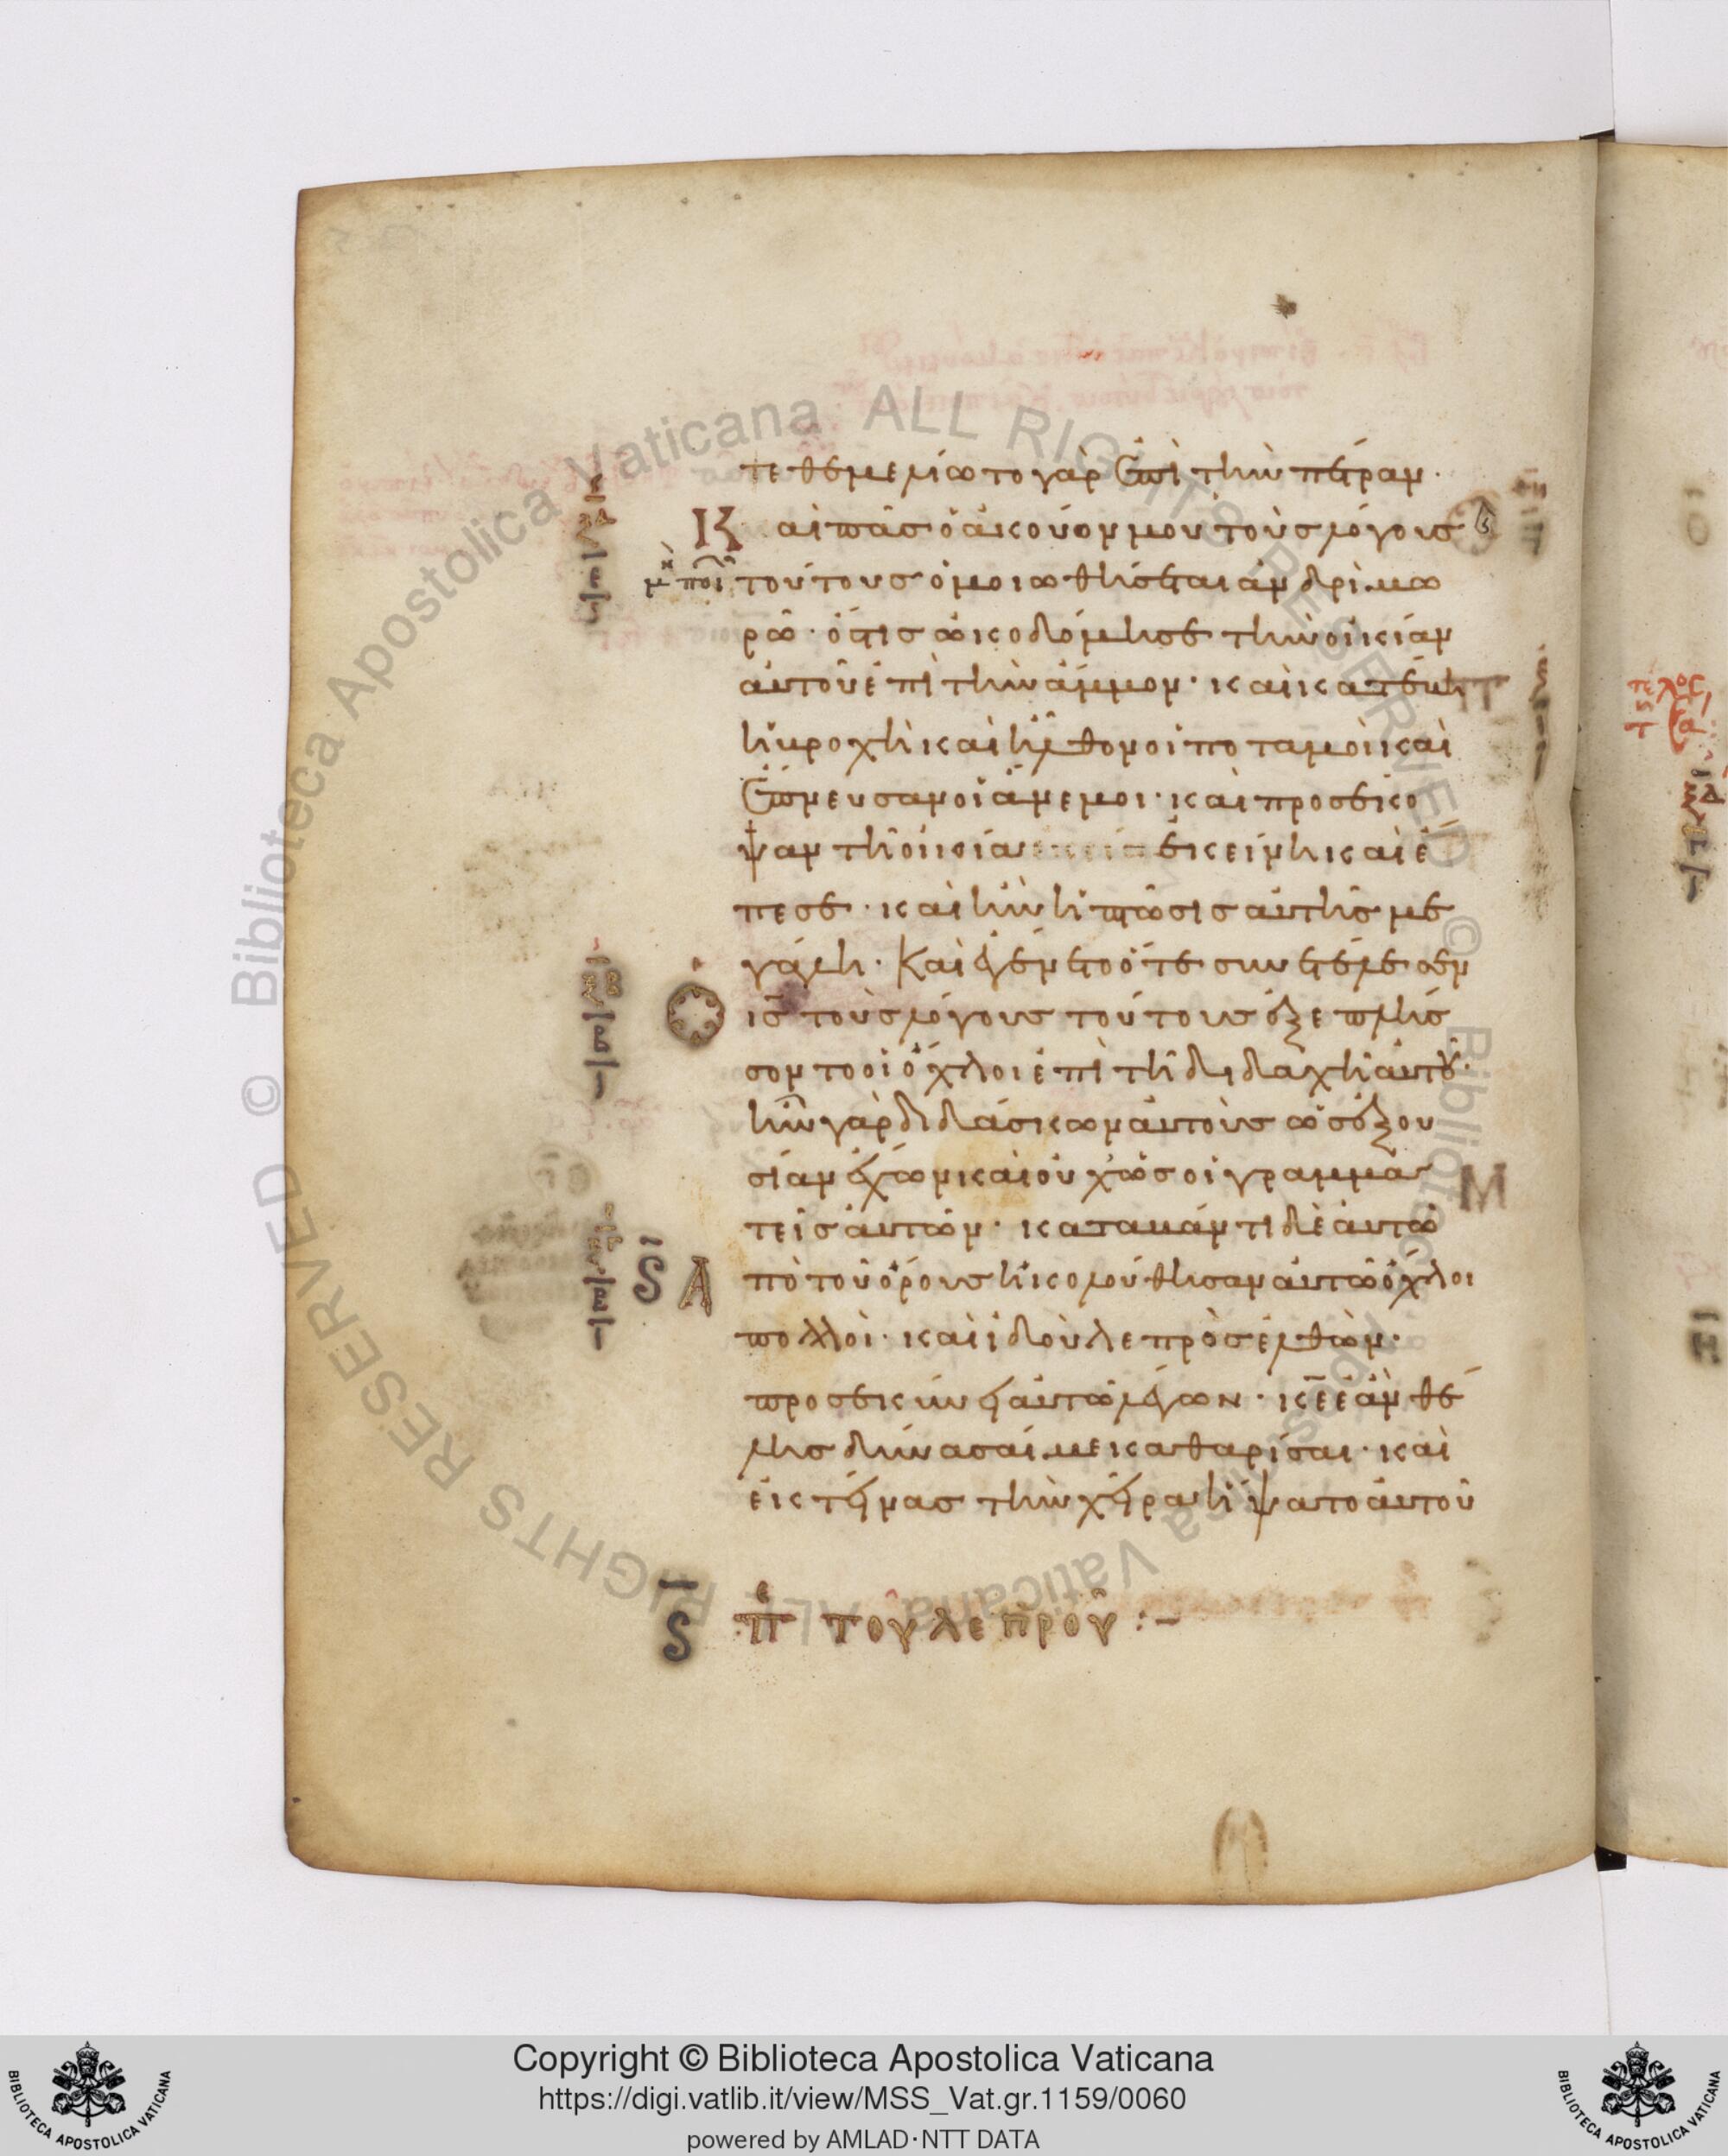 τεθεμελίωτο γὰρ ἐπὶ τὴν πέτραν·
Καὶ πᾶς ὁ ἀκούων μου τοὺς λόγους
μὴ ποι τούτους ὁμοιωθήσεται ἀνδρὶ μω
ρῶ· ὅστις ὠκοδόμησε τὴν οἰκίαν
αὐτοῦ ἐπὶ τὴν ἄμμον· καὶ κατέβη
ἡ βροχὴ καὶ ἦλθον οἱ ποταμοὶ καὶ
ἔπνευσαν οἱ ἄνεμοι· καὶ προσέκο
ψαν τῆ οἰκία ἐκείνη καὶ ἔ
πεσε· καὶ ἦν ἡ πτῶσις αὐτῆς με
γάλη· Καὶ ἐγένετο ὅτε συνετέλεσεν
ὁ ις τοὺς λόγους τούτους ἐξεπλήσ
σοντο οἱ ὄχλοι ἐπὶ τῆ διδαχῆ αὐτοῦ·
ἦν γὰρ διδάσκων αὐτοὺς ὡς ἐξου
σίαν ἔχων καὶ οὐχ ὡς οἱ γραμμα
τεῖς αὐτῶν· καταβάντι δὲ αὐτῶ
ς Ἀπὸ τοῦ ὄρους ἠκολούθησαν αὐτῶ ὄχλοι
πολλοί· καὶ ἰδοὺ λεπρὸς ἐλθὼν·
προσεκύνει αὐτῶ λέγων· κε ἐὰν θέ
λης δύνασαί με καθαρίσαι· καὶ
ἐκτείνας τὴν χεῖρα ἥψατο αὐτοῦ
ς πε τοῦ λεπροῦ :-
Copyright © Biblioteca Apostolica Vaticana
https://digi.vatlib.it/view/MSS_Vat.gr.1159/0060
powered by AMLAD·NTT DATA
BIBLIOTECA APOSTOLICA VATICANA
BIBLIOTECA APOSTOLICA VATICANA
© Biblioteca Apostolica Vaticana ALL RIGHTS RESERVED